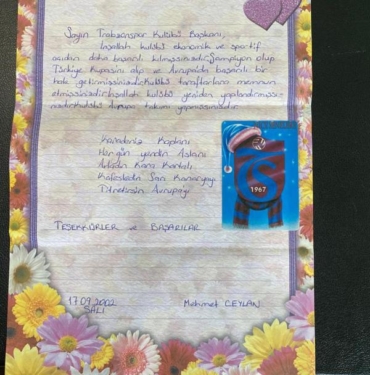 Sayın Trabzonspor Kulübü Başkanı,
İnşallah kulübü ekonomik ve sportif
açıdan daha başarılı kılmışsınızdır. Şampiyon olup
Türkiye Kupasını alıp ve Avrupa'da başarılı bir
hale getirmişsinizdir. Kulübü taraftarlara memnun
etmişsinizdir. İnşallah kulübü yeniden yapılandırmış-
sınızdır. Kulübü Avrupa takımı yapmışsınızdır.
Karadeniz Kaplanı
Hergün yendin Aslanı
Kara Kartalı
Kafeslersin Sarı Kanaryayı
Titretirsin Avrupayı
1967
TEŞEKKÜRLER ve BAŞARILAR
17.09.2002
SALI
Mehmet CEYLAN